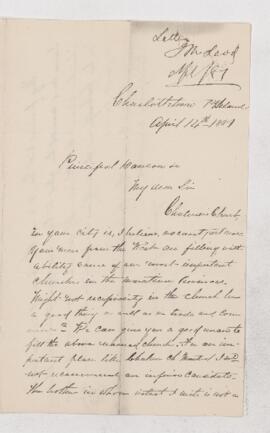 Letter
J McLeod
Apl /87
Charlottetown P E Island
April 14th 18
Principal
My dear Sir
Chalmers Church
In your city is, I believe, vacant,
from the West are filling with
ability some of our most important
churches in the maritime Provinces.
Might not reciprocity in the church be
a good thing as well as in trade and com
merce? We can give you a good man to
fill the above named church. In an im
portant place like Chalmers Ch I would
not recommend an inferior candidate.
The brother in whom I write is not a